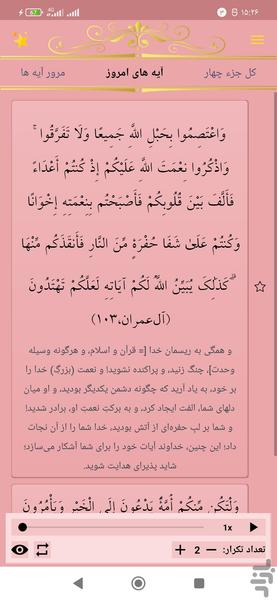 ۱۵:۲۶
4G
67
کل جزء چهار
آیه های امروز
مرور آیه ها
وَاعْتَصِمُوا بِحَبْلِ اللَّهِ جَمِيعًا وَلَا تَفَرَّقُوا ۚ
وَاذْكُرُوا نِعْمَتَ اللَّهِ عَلَيْكُمْ إِذْ كُنْتُمْ أَعْدَاءً
فَأَلَّفَ بَيْنَ قُلُوبِكُمْ فَأَصْبَحْتُم بِنِعْمَتِهِ إِخْوَانًا
وَكُنْتُمْ عَلَىٰ شَفَا حُفْرَةٍ مِّنَ النَّارِ فَأَنقَذَكُم مِّنْهَا
ۗ كَذَٰلِكَ يُبَيِّنُ اللَّهُ لَكُمْ آيَاتِهِ لَعَلَّكُمْ تَهْتَدُونَ
(آل‌عمران،۱۰۳)
و همگی به ریسمان خدا [= قرآن و اسلام، و هرگونه وسیله
وحدت]، چنگ زنید، و پراکنده نشوید! و نعمت (بزرگِ) خدا را
بر خود، به یاد آرید که چگونه دشمن یکدیگر بودید، و او میان
دلهای شما، الفت ایجاد کرد، و به برکتِ نعمتِ او، برادر شدید!
و شما بر لبِ حفره‌ای از آتش بودید، خدا شما را از آن نجات
داد؛ این چنین، خداوند آیات خود را برای شما آشکار می‌سازد؛
شاید پذیرای هدایت شوید.
وَلْتَكُن مِّنكُمْ أُمَّةٌ يَدْعُونَ إِلَى الْخَيْرِ وَيَأْمُرُونَ
1x
تعداد تکرار: − 2 +
بازار